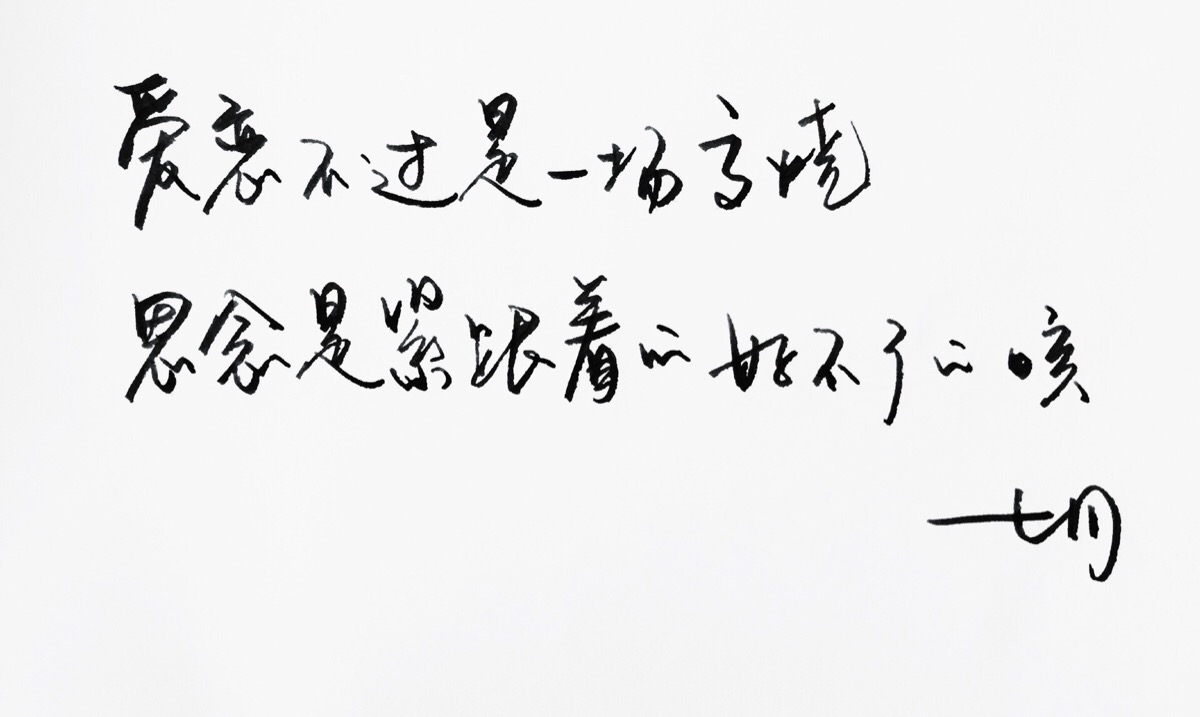 爱恋不过是一场高烧
思念是紧跟着的好不了的咳
一七月